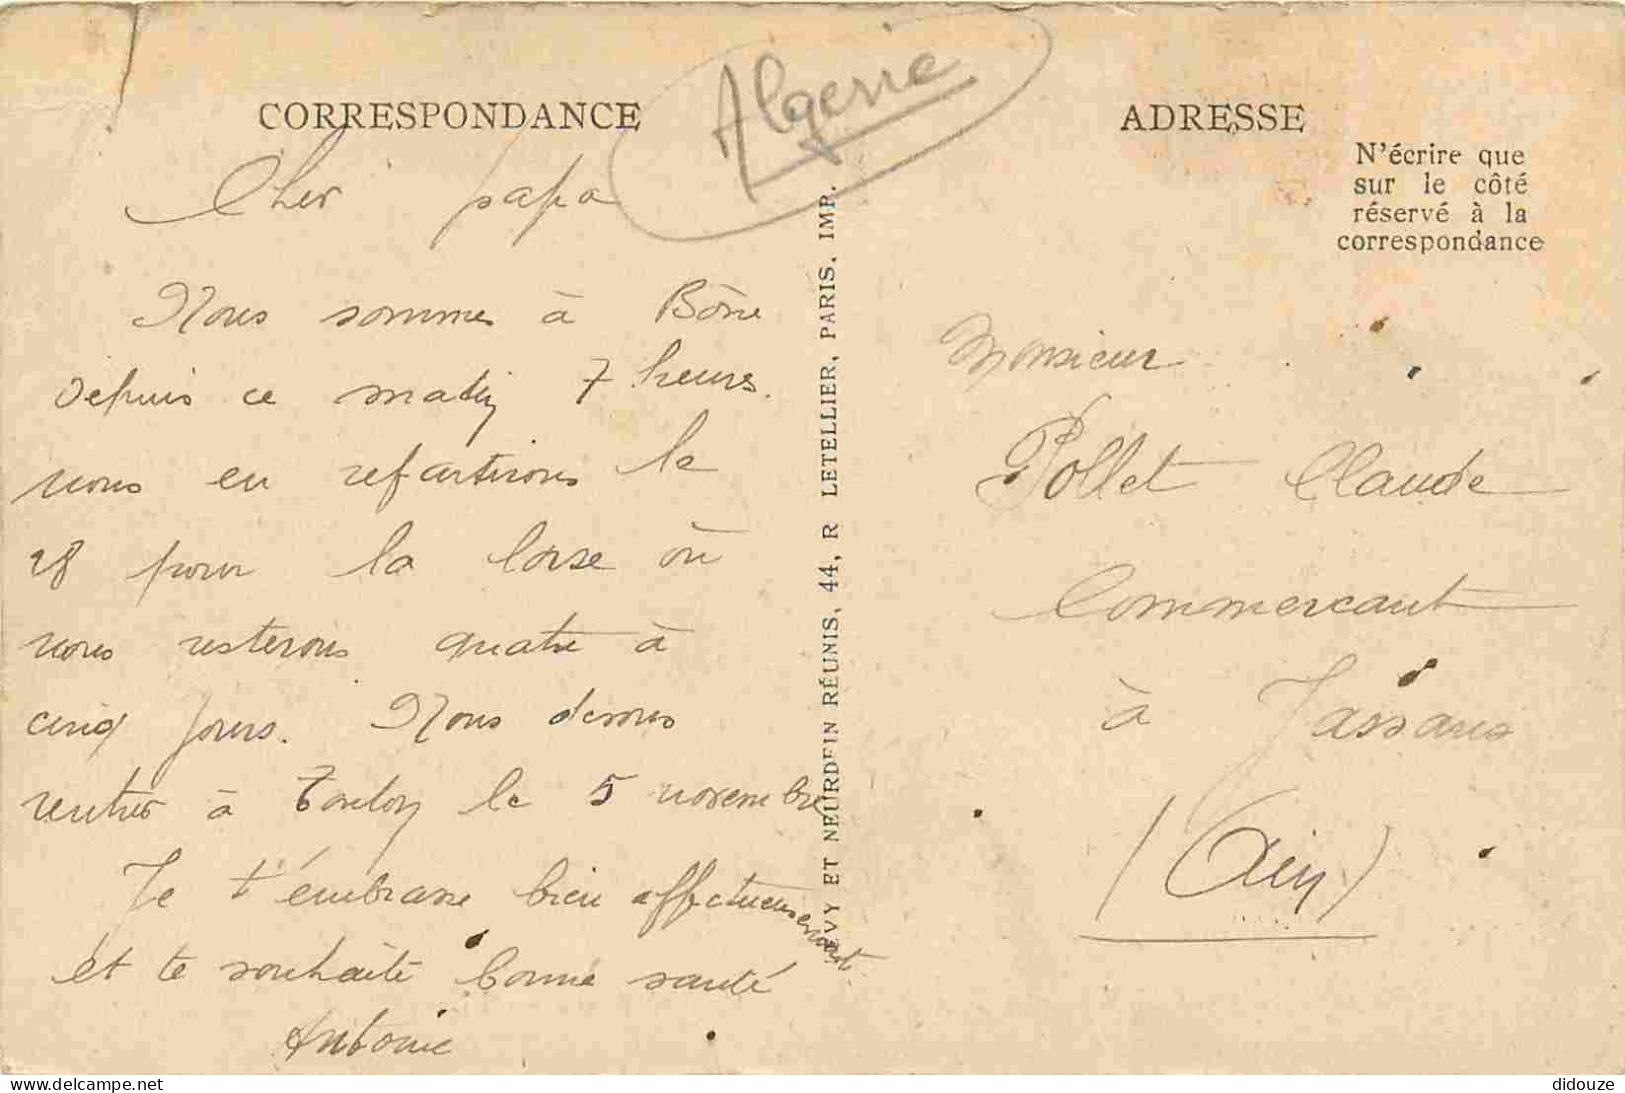 CORRESPONDANCE
Algerie
Cher papa
Nous sommes à Bône
depuis ce matin 7 heures.
nous en repartirons le
28 pour la Corse où
nous resterons quatre à
cinq jours. Nous devons
rentrer à Toulon le 5 novembre
Je t'embrasse bien affectueusement
et te souhaite bonne santé
Antoine
LEVY ET NEURDEIN RÉUNIS, 44, R LETELLIER, PARIS, IMP.
ADRESSE
N'écrire que
sur le côté
réservé à la
correspondance
Monsieur
Pollet Claude
Commercant
à Jassans
(Ain)
delcampe.net
didouze